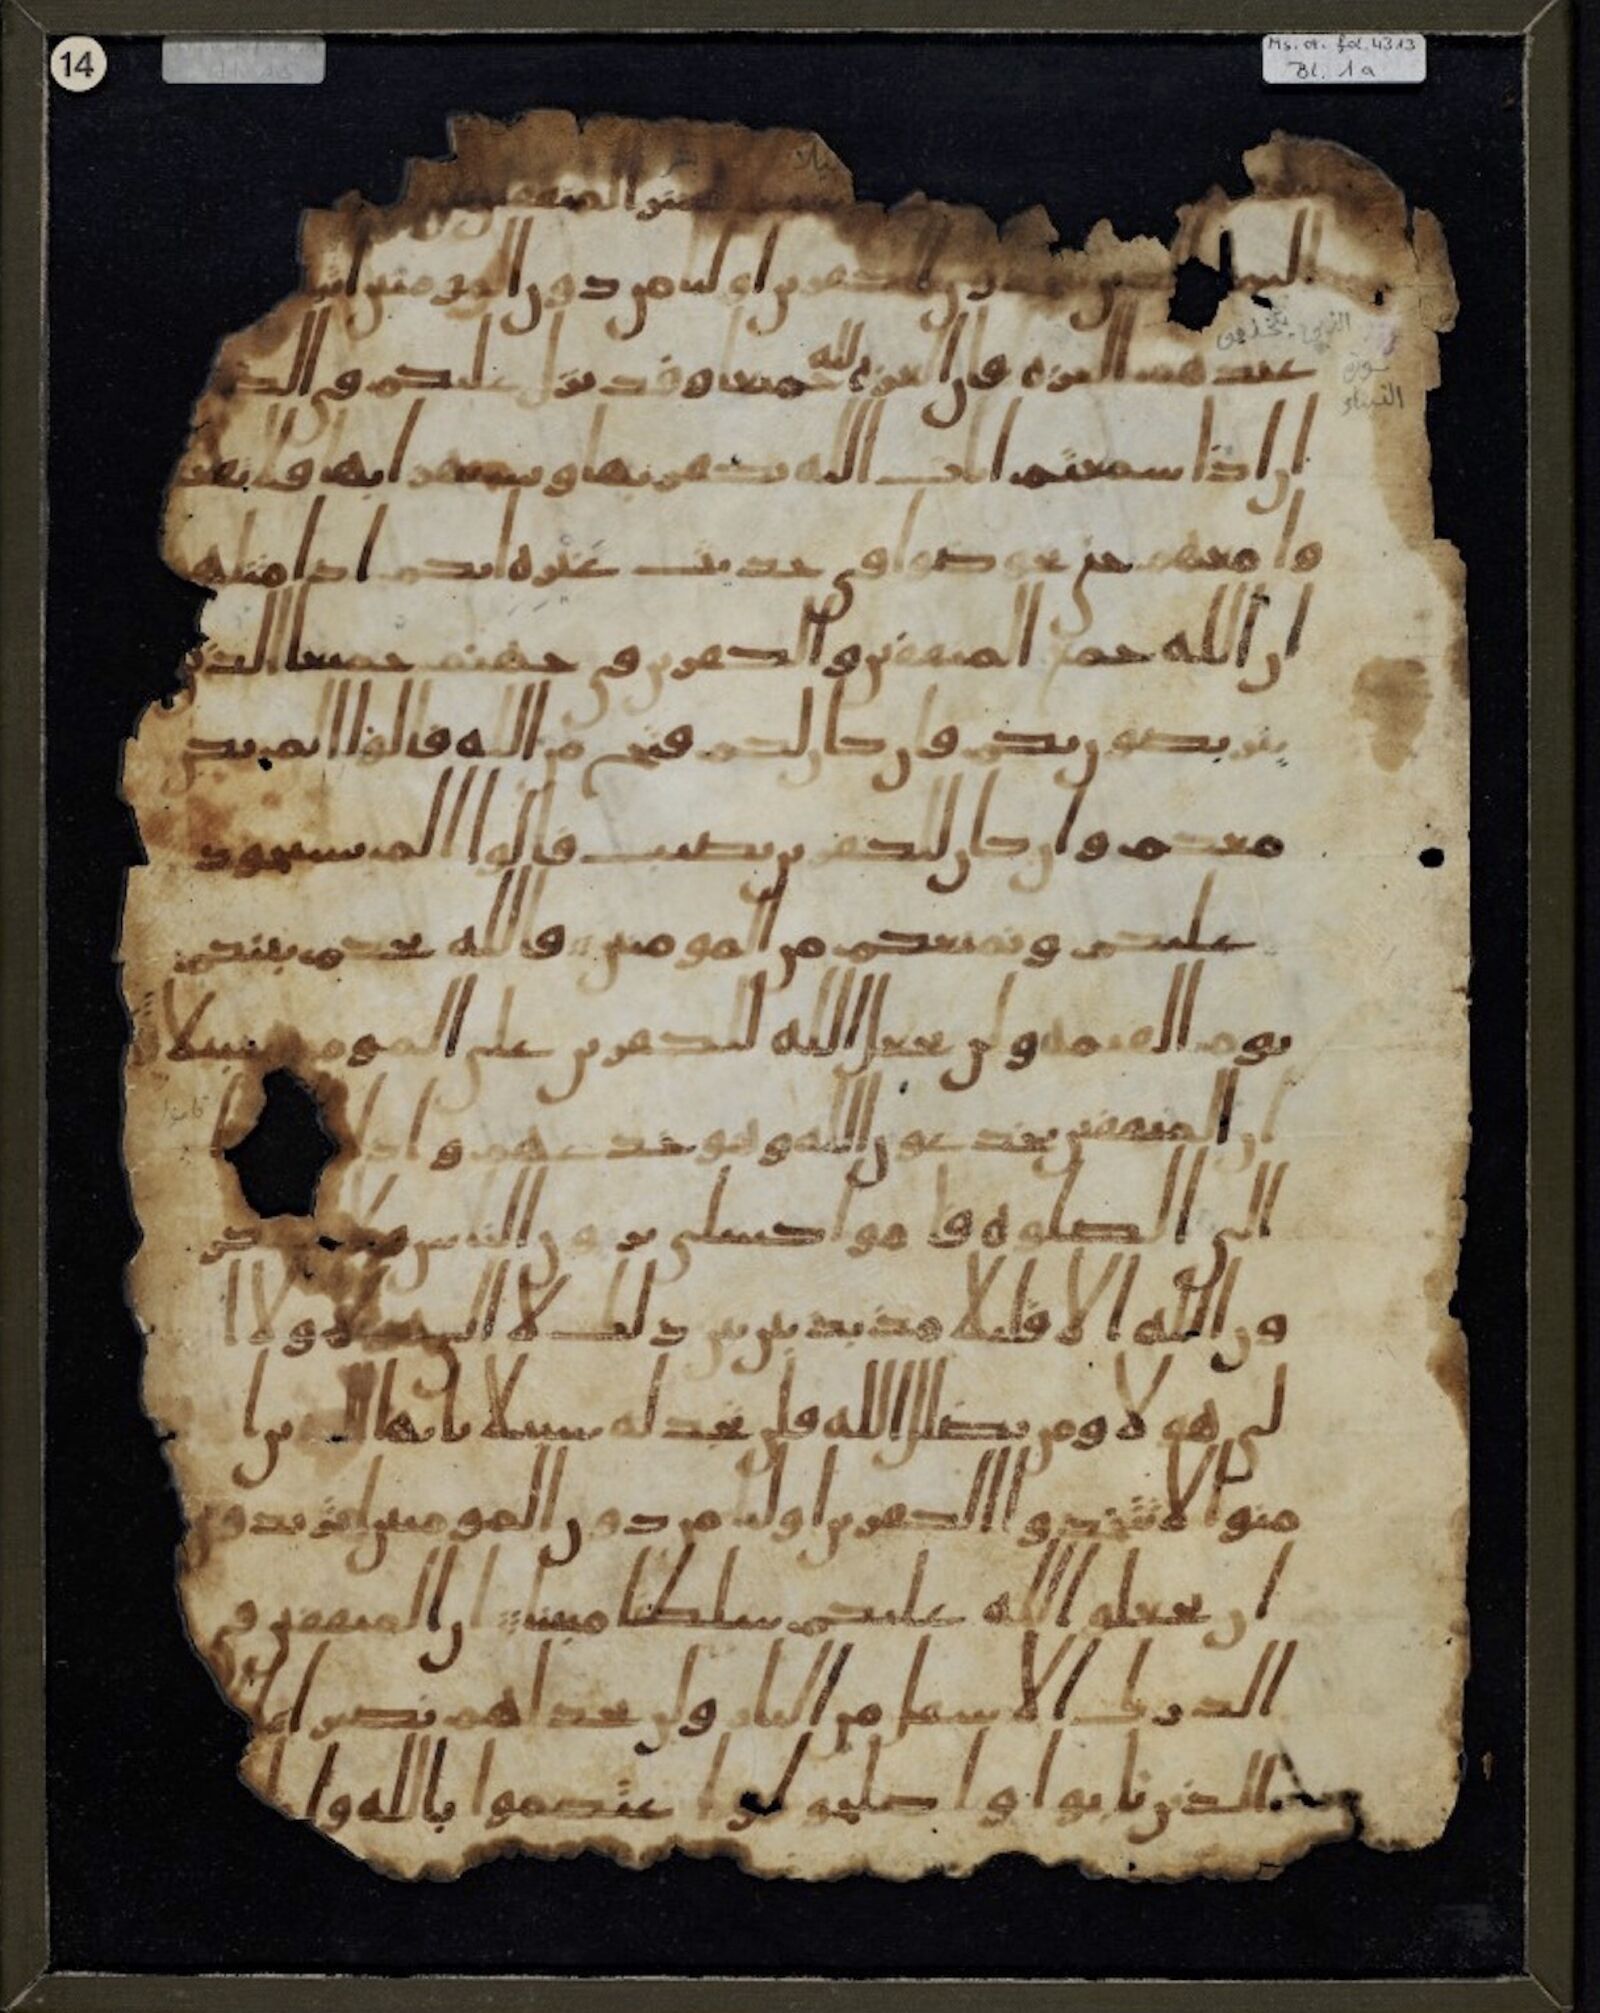 14
Ms. or. fol. 4313
Bl. 1a
المنفقين
اليما الذين يتخذون الكفرين اوليا من دون المومنين
الذين يتخذون
سورة
النساء
عندهم العزه فان العزه لله جميعا وقد نزل عليكم في الكـ
ان اذا سمعتم ايت الله يكفر بها ويستهزا بها فلا تقعد
وا معهم حتى يخوضوا في حديث غيره انكم اذا مثلهم
ان الله جمع المنفقين والكفرين في جهنم جميعا الذين
يتربصون بكم فان كان لكم فتح من الله قالوا الم نكن
معكم وان كان للكفرين نصيب قالوا الم نستحوذ
عليكم ونمنعكم من المومنين فالله يحكم بينكم
يوم القيمه ولن يجعل الله للكفرين على المومنين سبيلا
ان المنفقين يخدعون الله وهو خدعهم واذا
الى الصلوه قاموا كسلى يرون الناس ولا يذكر
ون الله الا قليلا مذبذبين بين ذلك لا الى هولا ولا ا
لى هولا ومن يضلل الله فلن تجد له سبيلا يايها الذين ا
منوا لا تتخذوا الكفرين اوليا من دون المومنين اتريدون
ان تجعلوا لله عليكم سلطنا مبينا ان المنفقين في
الدرك الاسفل من النار ولن تجد لهم نصيرا الا
الذين تابوا واصلحوا واعتصموا بالله وا